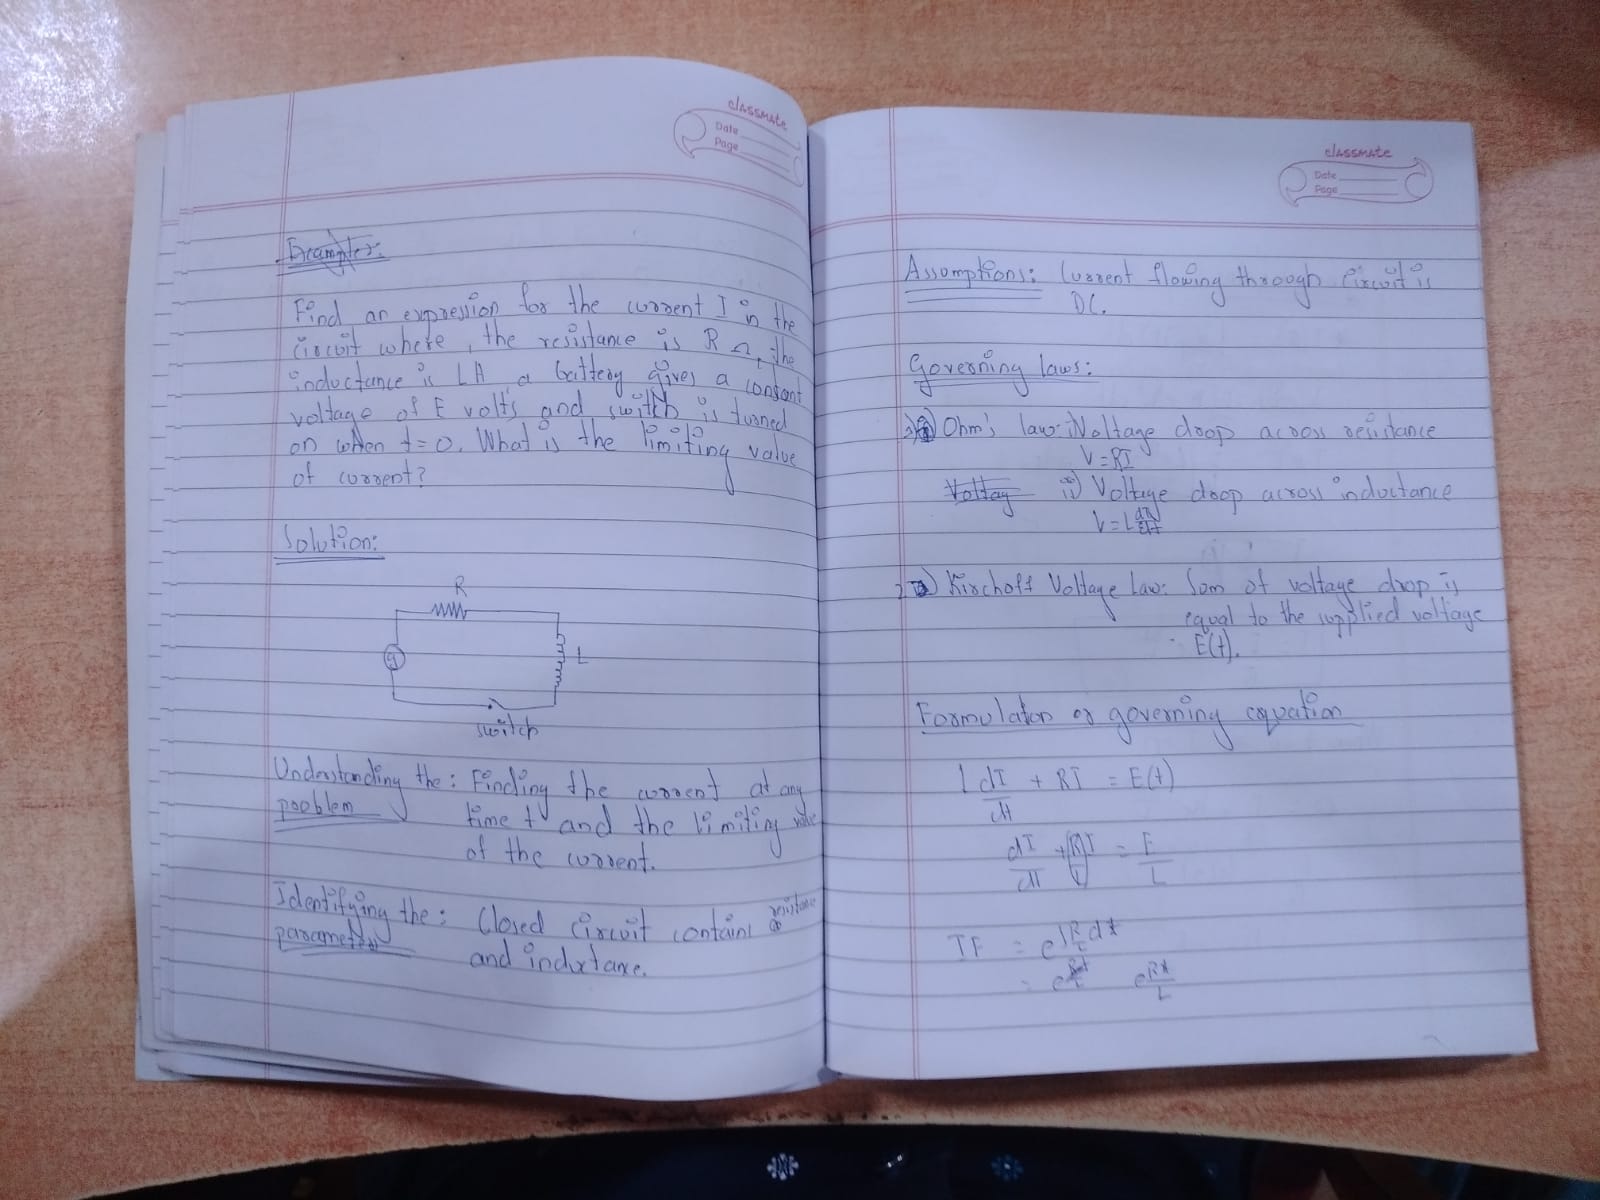 classmate
Date
Page
Example:
Find an expression for the current I in the
circuit where, the resistance is R Ω, the
inductance is LH, a battery gives a constant
voltage of E volts and switch is turned
on when t=0. What is the limiting value
of current?
Solution:
R
L
switch
Understanding the : Finding the current at any
problem time t and the limiting value
of the current.
Identifying the : Closed circuit contains resistance
parameters and inductance.
classmate
Date
Page
Assumptions: Current flowing through circuit is
DC.
Governing laws:
Ohm's law: i) Voltage drop across resistance
V=RI
Voltag ii) Voltage drop across inductance
V=L dI/dt
2) Kirchoff Voltage Law: Sum of voltage drop is
equal to the supplied voltage
E(t).
Formulaton or governing equation
L dI/dt + RI = E(t)
dI/dt + (R/L)I = E/L
IF = e^∫R/L dt
= e^Rt/L